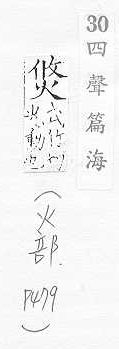 30
四聲篇海
焂
式竹切
火動也
(火部. P479)